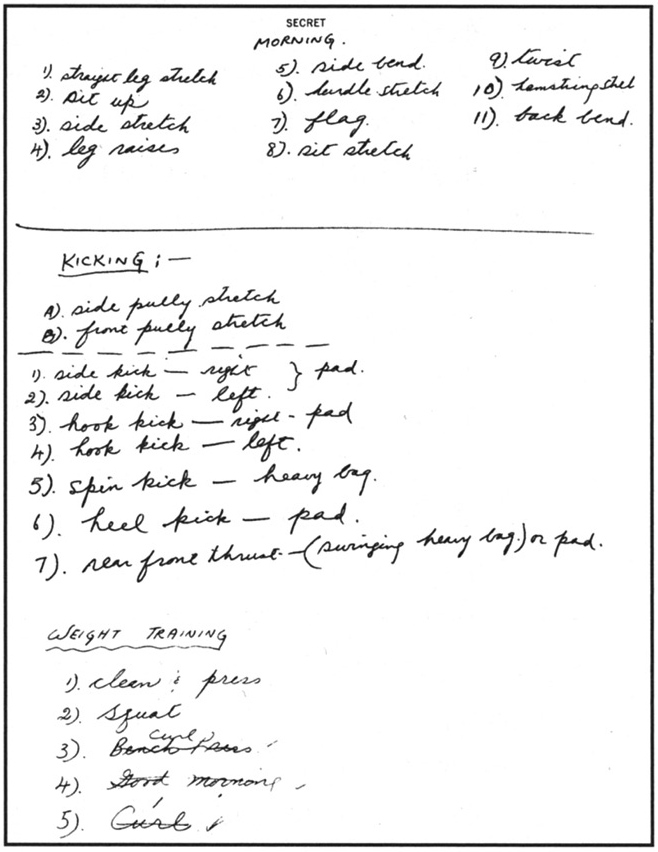 SECRET
MORNING.
1). straight leg stretch
2). sit up
3). side stretch
4). leg raises
5). side bend.
6). hurdle stretch
7). flag.
8). sit stretch
9) twist
10). hamstring
11). back bend.
KICKING ; —
A). side pully stretch
B). front pully stretch
1). side kick — right } pad.
2). side kick — left.
3). hook kick — right - pad
4). hook kick — left.
5). spin kick — heavy bag.
6). heel kick — pad.
7). rear front thrust - (swinging heavy bag.) or pad.
WEIGHT TRAINING
1). clean & press
2). squat
Curl
3). Bench Press
4). Good morning
5). Curl